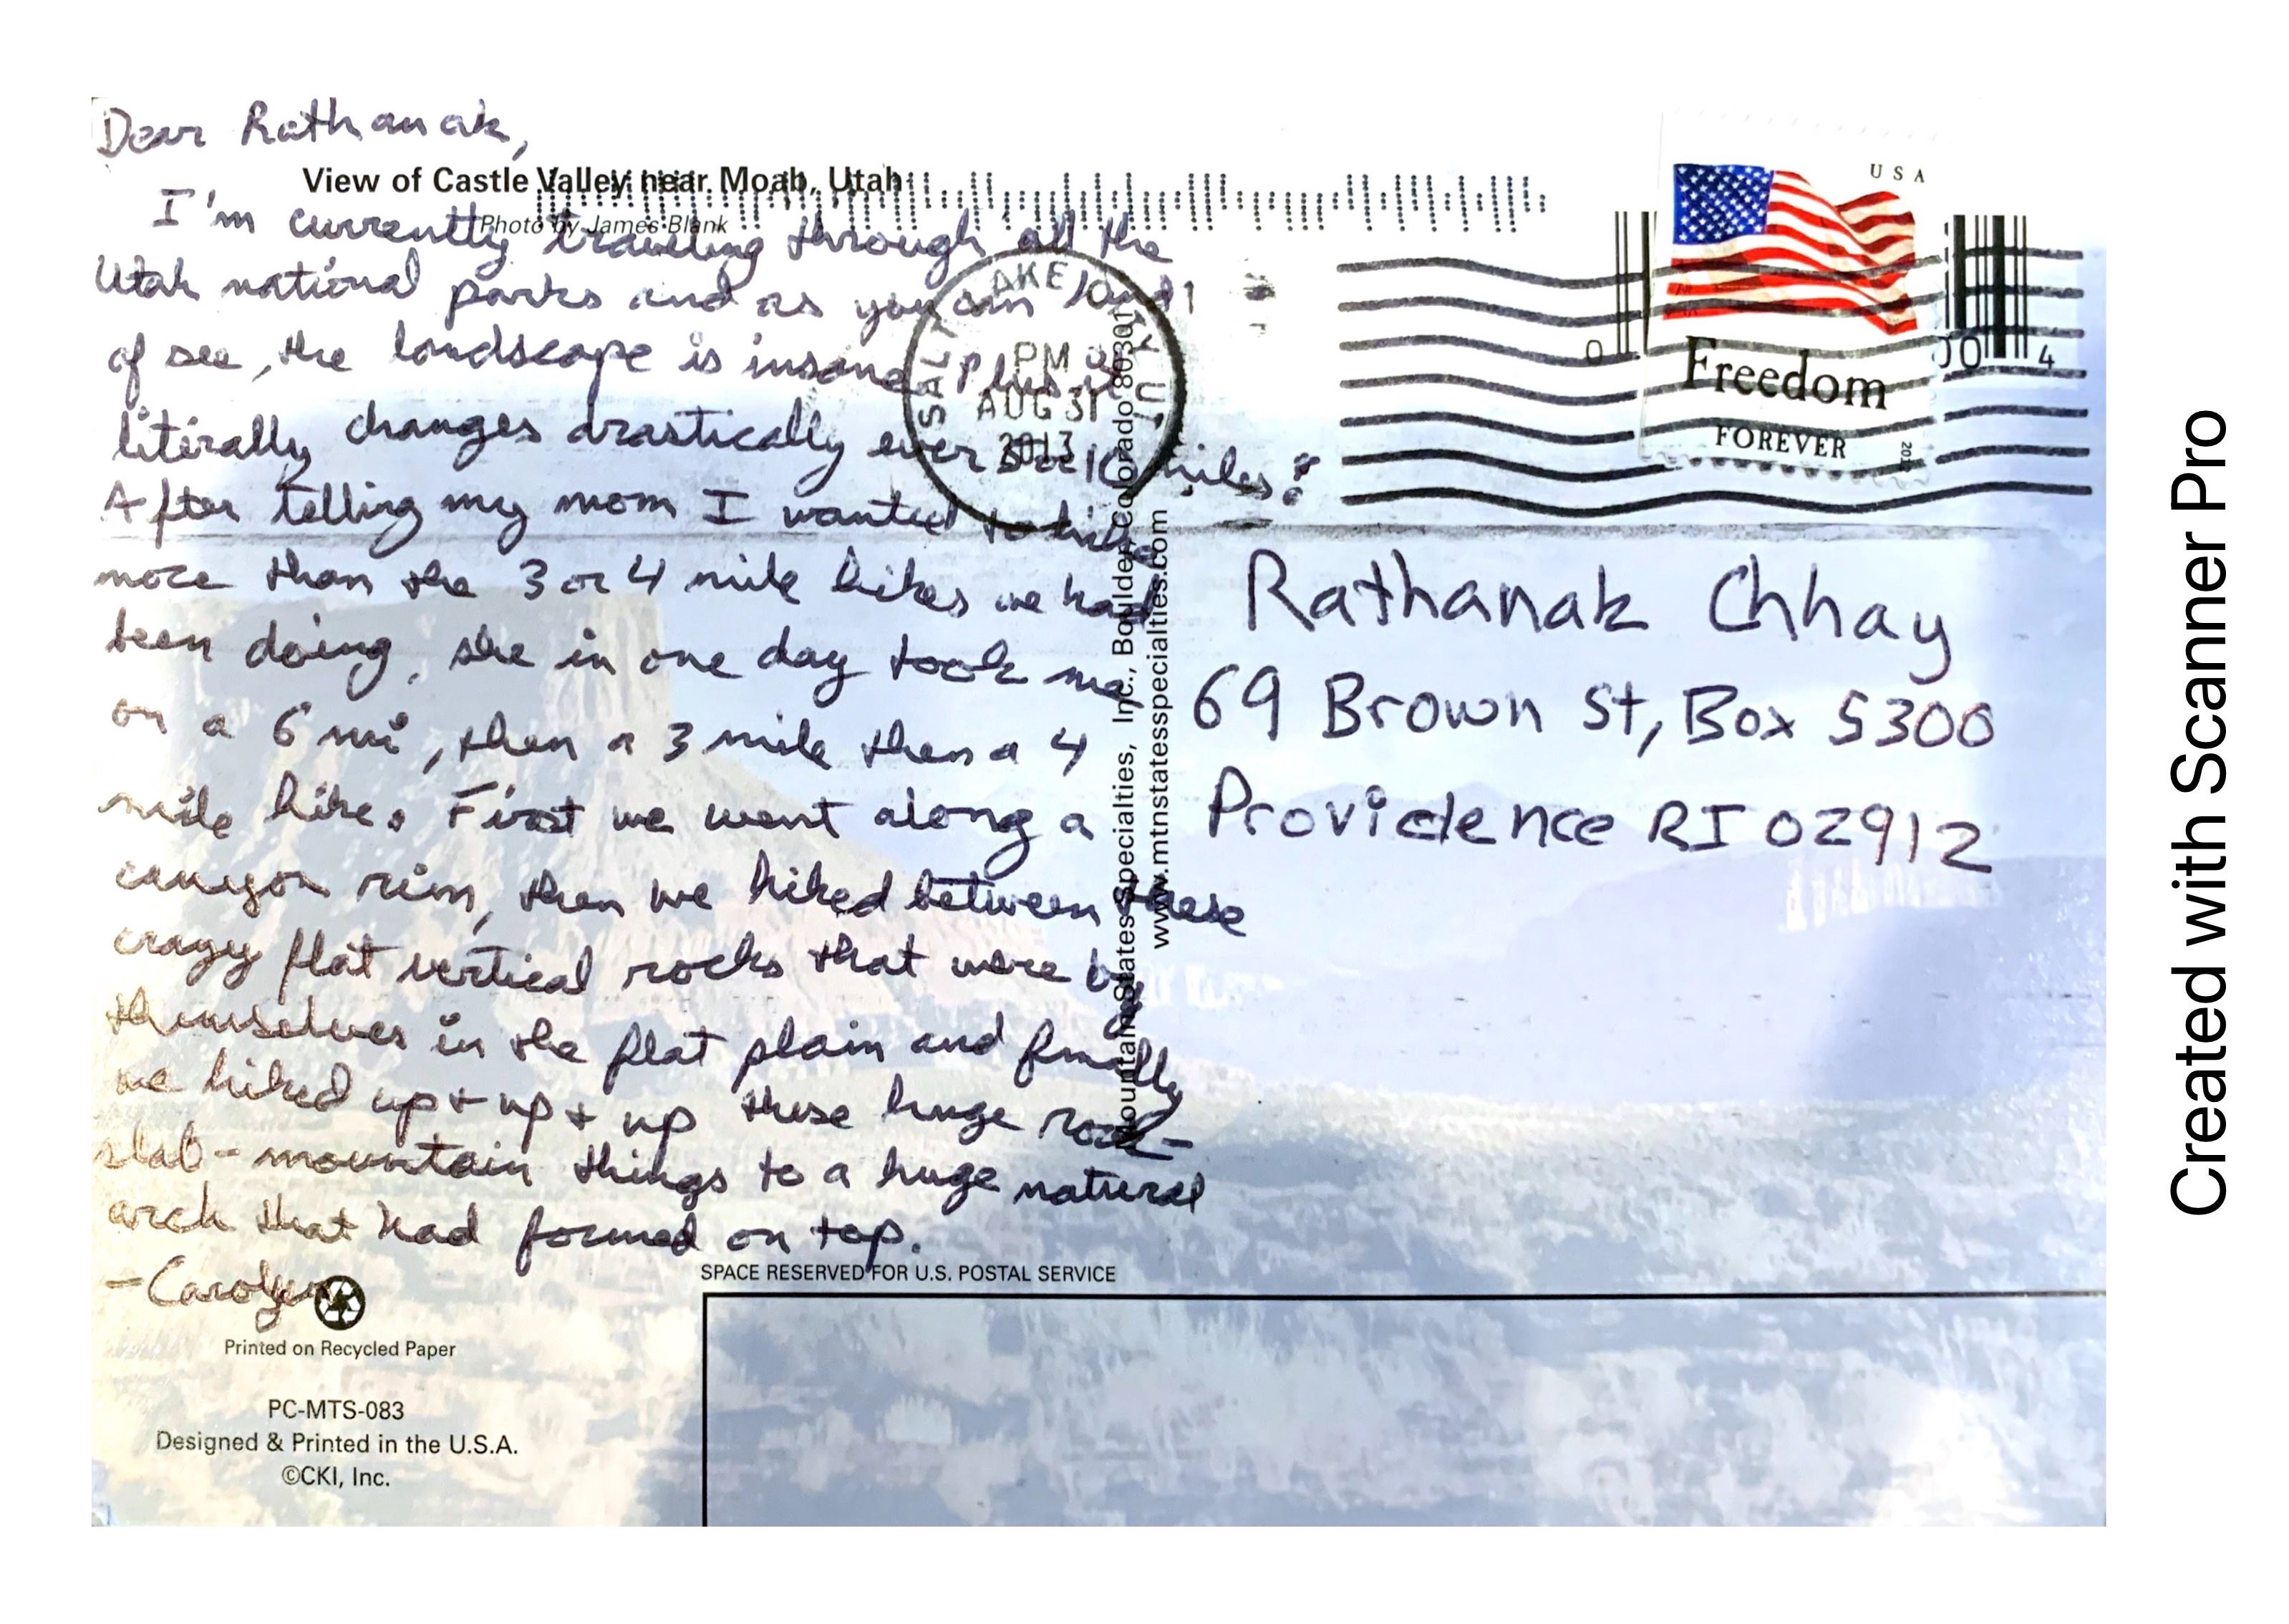 Dear Rathanak,
View of Castle Valley near Moab, Utah
Photo by James Blank
I'm currently traveling through all the
Utah national parks and as you can kind
of see, the landscape is insane. Plus it
literally changes drastically ever 5 or 10 miles.
After telling my mom I wanted to hike
more than the 3 or 4 mile hikes we had
been doing, she in one day took me
on a 6 mi, then a 3 mile then a 4
mile hike. First we went along a
canyon rim, then we hiked between these
crazy flat vertical rocks that were by
themselves in the flat plain and finally
we hiked up + up + up these huge rock-
slab-mountain things to a huge natural
arch that had formed on top.
-Carolyn
Printed on Recycled Paper
PC-MTS-083
Designed & Printed in the U.S.A.
©CKI, Inc.
SPACE RESERVED FOR U.S. POSTAL SERVICE
Mountain States Specialties, Inc., Boulder, Colorado 80301
www.mtnstatesspecialties.com
SALT LAKE
PM
AUG 31
2013
USA
Freedom
FOREVER
Rathanak Chhay
69 Brown St, Box 5300
Providence RI 02912
Created with Scanner Pro